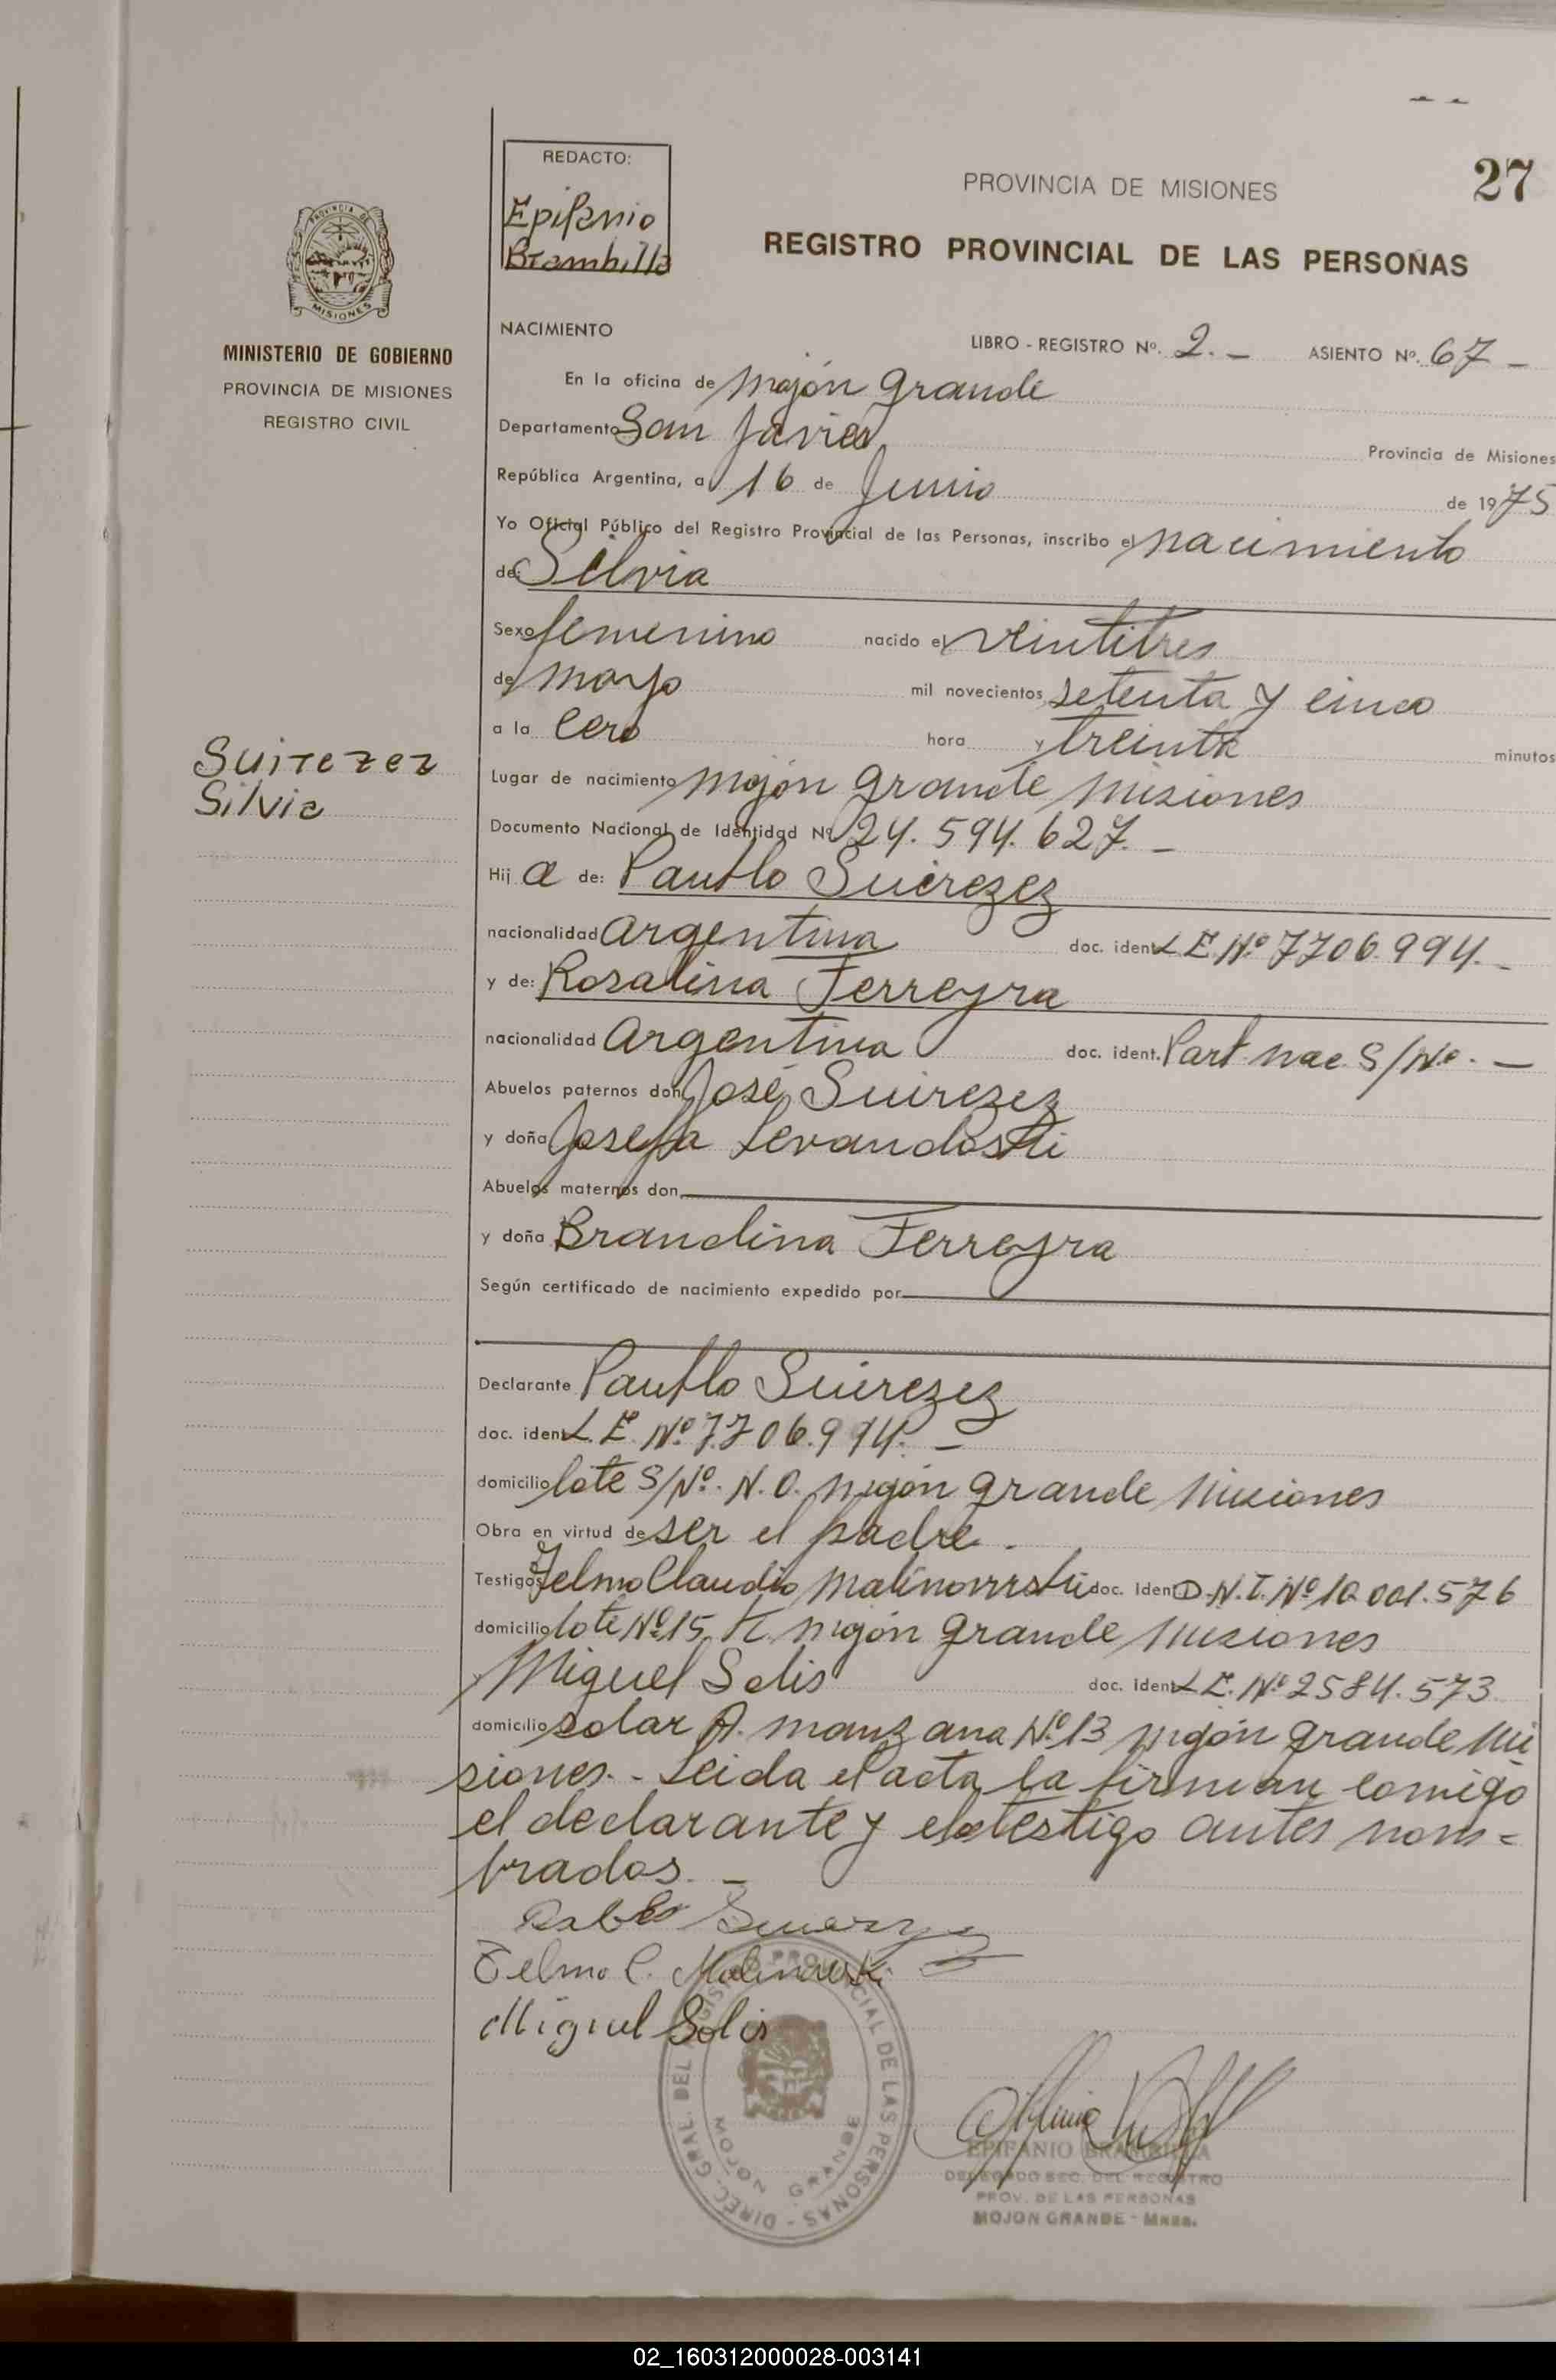 27
REDACTO:
Epifanio
Brambilla
PROVINCIA DE MISIONES
REGISTRO PROVINCIAL DE LAS PERSONAS
PROVINCIA DE
MISIONES
MINISTERIO DE GOBIERNO
PROVINCIA DE MISIONES
REGISTRO CIVIL
NACIMIENTO
LIBRO - REGISTRO Nº. 2.- ASIENTO Nº. 67 -
En la oficina de Mojón Grande
Departamento San Javier Provincia de Misiones
República Argentina, a 16 de Junio de 1975
Yo Oficial Público del Registro Provincial de las Personas, inscribo el nacimiento
de: Silvia
Sexo femenino nacido el veintitres
de mayo mil novecientos setenta y cinco
a la cero hora y treinta minutos
Suirezez
Silvia
Lugar de nacimiento Mojón Grande Misiones
Documento Nacional de Identidad Nº 24.594.627.-
Hij a de: Pautlo Suirezez
nacionalidad argentina doc. ident. L.E. Nº 7706.994.-
y de: Rosalina Ferreyra
nacionalidad argentina doc. ident. Part nac S/Nº.-
Abuelos paternos don José Suirezez
y doña Josefa Levandoski
Abuelos maternos don
y doña Brandina Ferreyra
Según certificado de nacimiento expedido por
Declarante Pautlo Suirezez
doc. ident. L.E. Nº 7.706.994.-
domicilio lote S/Nº. N.O. Mojón Grande Misiones
Obra en virtud de ser el padre.
Testigos Telmo Claudio Malinowski doc. Ident. D.N.I. Nº 10.001.576
domicilio lote Nº 15 K Mojón Grande Misiones
y Miguel Solis doc. Ident. L.E. Nº 2584.573
domicilio solar A. manzana Nº 13 Mojón Grande Mi
siones.- Leida el acta la firman comigo
el declarante y el testigo antes nom=
brados.-
Telmo C. Malinowski
Miguel Solis
DIREC. GRAL. DEL REGISTRO PROVINCIAL DE LAS PERSONAS
MOJON GRANDE
EPIFANIO BRAMBILLA
DELEGADO SEC. DEL REGISTRO
PROV. DE LAS PERSONAS
MOJON GRANDE - Mnes.
02_160312000028-003141